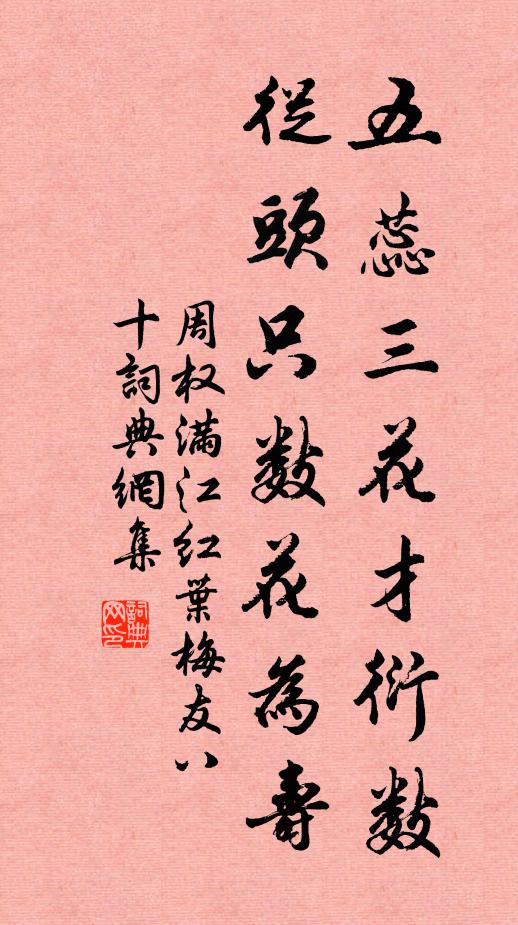 五蕊三花才衍數
從頭只數花為壽
周权满江红葉梅友八
十詞典網集
詞典网印